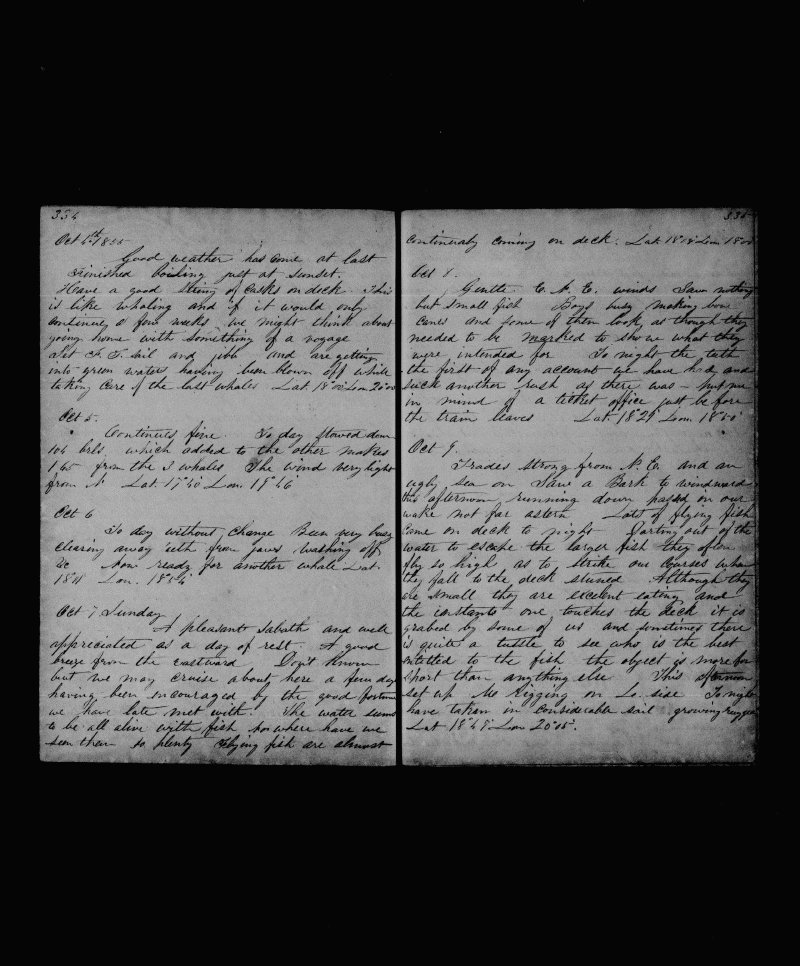 334
Oct 4th 1855
Good weather has come at last
Finished boiling just at sunset.
Have a good string of casks on deck. This
is like whaling and if it would only
continue a few weeks we might think about
going home with something of a voyage
Set F. T. sail and jibb and are getting
into green waters having been blown off while
taking care of the last whales Lat. 18°00' Lon. 20°00'
Oct 5.
Continues fine. To day stowed down
104 brls. which added to the other makes
165 from the 3 whales The wind very light
from N Lat. 17°40' Lon. 19°46'
Oct 6
To day without change Been very busy
clearing away teeth from jaws washing off
&c Now ready for another whale Lat.
18°11 Lon. 18°54'
Oct 7 Sunday
A pleasant Sabath and well
appreciated as a day of rest. A good
breeze from the eastward Don't know
but we may cruise about here a few days
having been incouraged by the good fortune
we have late met with. The water seems
to be all alive with fish nor where have we
seen them so plenty Flying fish are almost
335
continualy coming on deck. Lat. 18°18' Lon. 18°00'
Oct 8.
Gentle E. N. E. winds Saw nothing
but small fish Boys busy making bone
canes and some of them look as though they
needed to be marked to show what they
were intended for To night the teeth
the first of any account we have had and
such another rush as there was – put me
in mind of a ticket office just before
the train leaves Lat. 18°29' Lon. 18°50'
Oct 9.
Trades strong from N. E. and an
ugly sea on Saw a Bark to windward
this afternoon running down passed on our
wake not far astern Lots of flying fish
come on deck to night Darting out of the
water to escape the larger fish they often
fly so high as to strike our courses when
they fall to the deck stuned Although they
are small they are excelent eating and
the instante one touches the deck it is
grabed by some of us and sometimes there
is quite a tussle to see who is the best
entitled to the fish the object is more for
sport than anything else This afternoon
set up Mo Rigging on Lo. side To night
have taken in considerable sail growing rugged
Lat 18°48' Lon 20°05'.